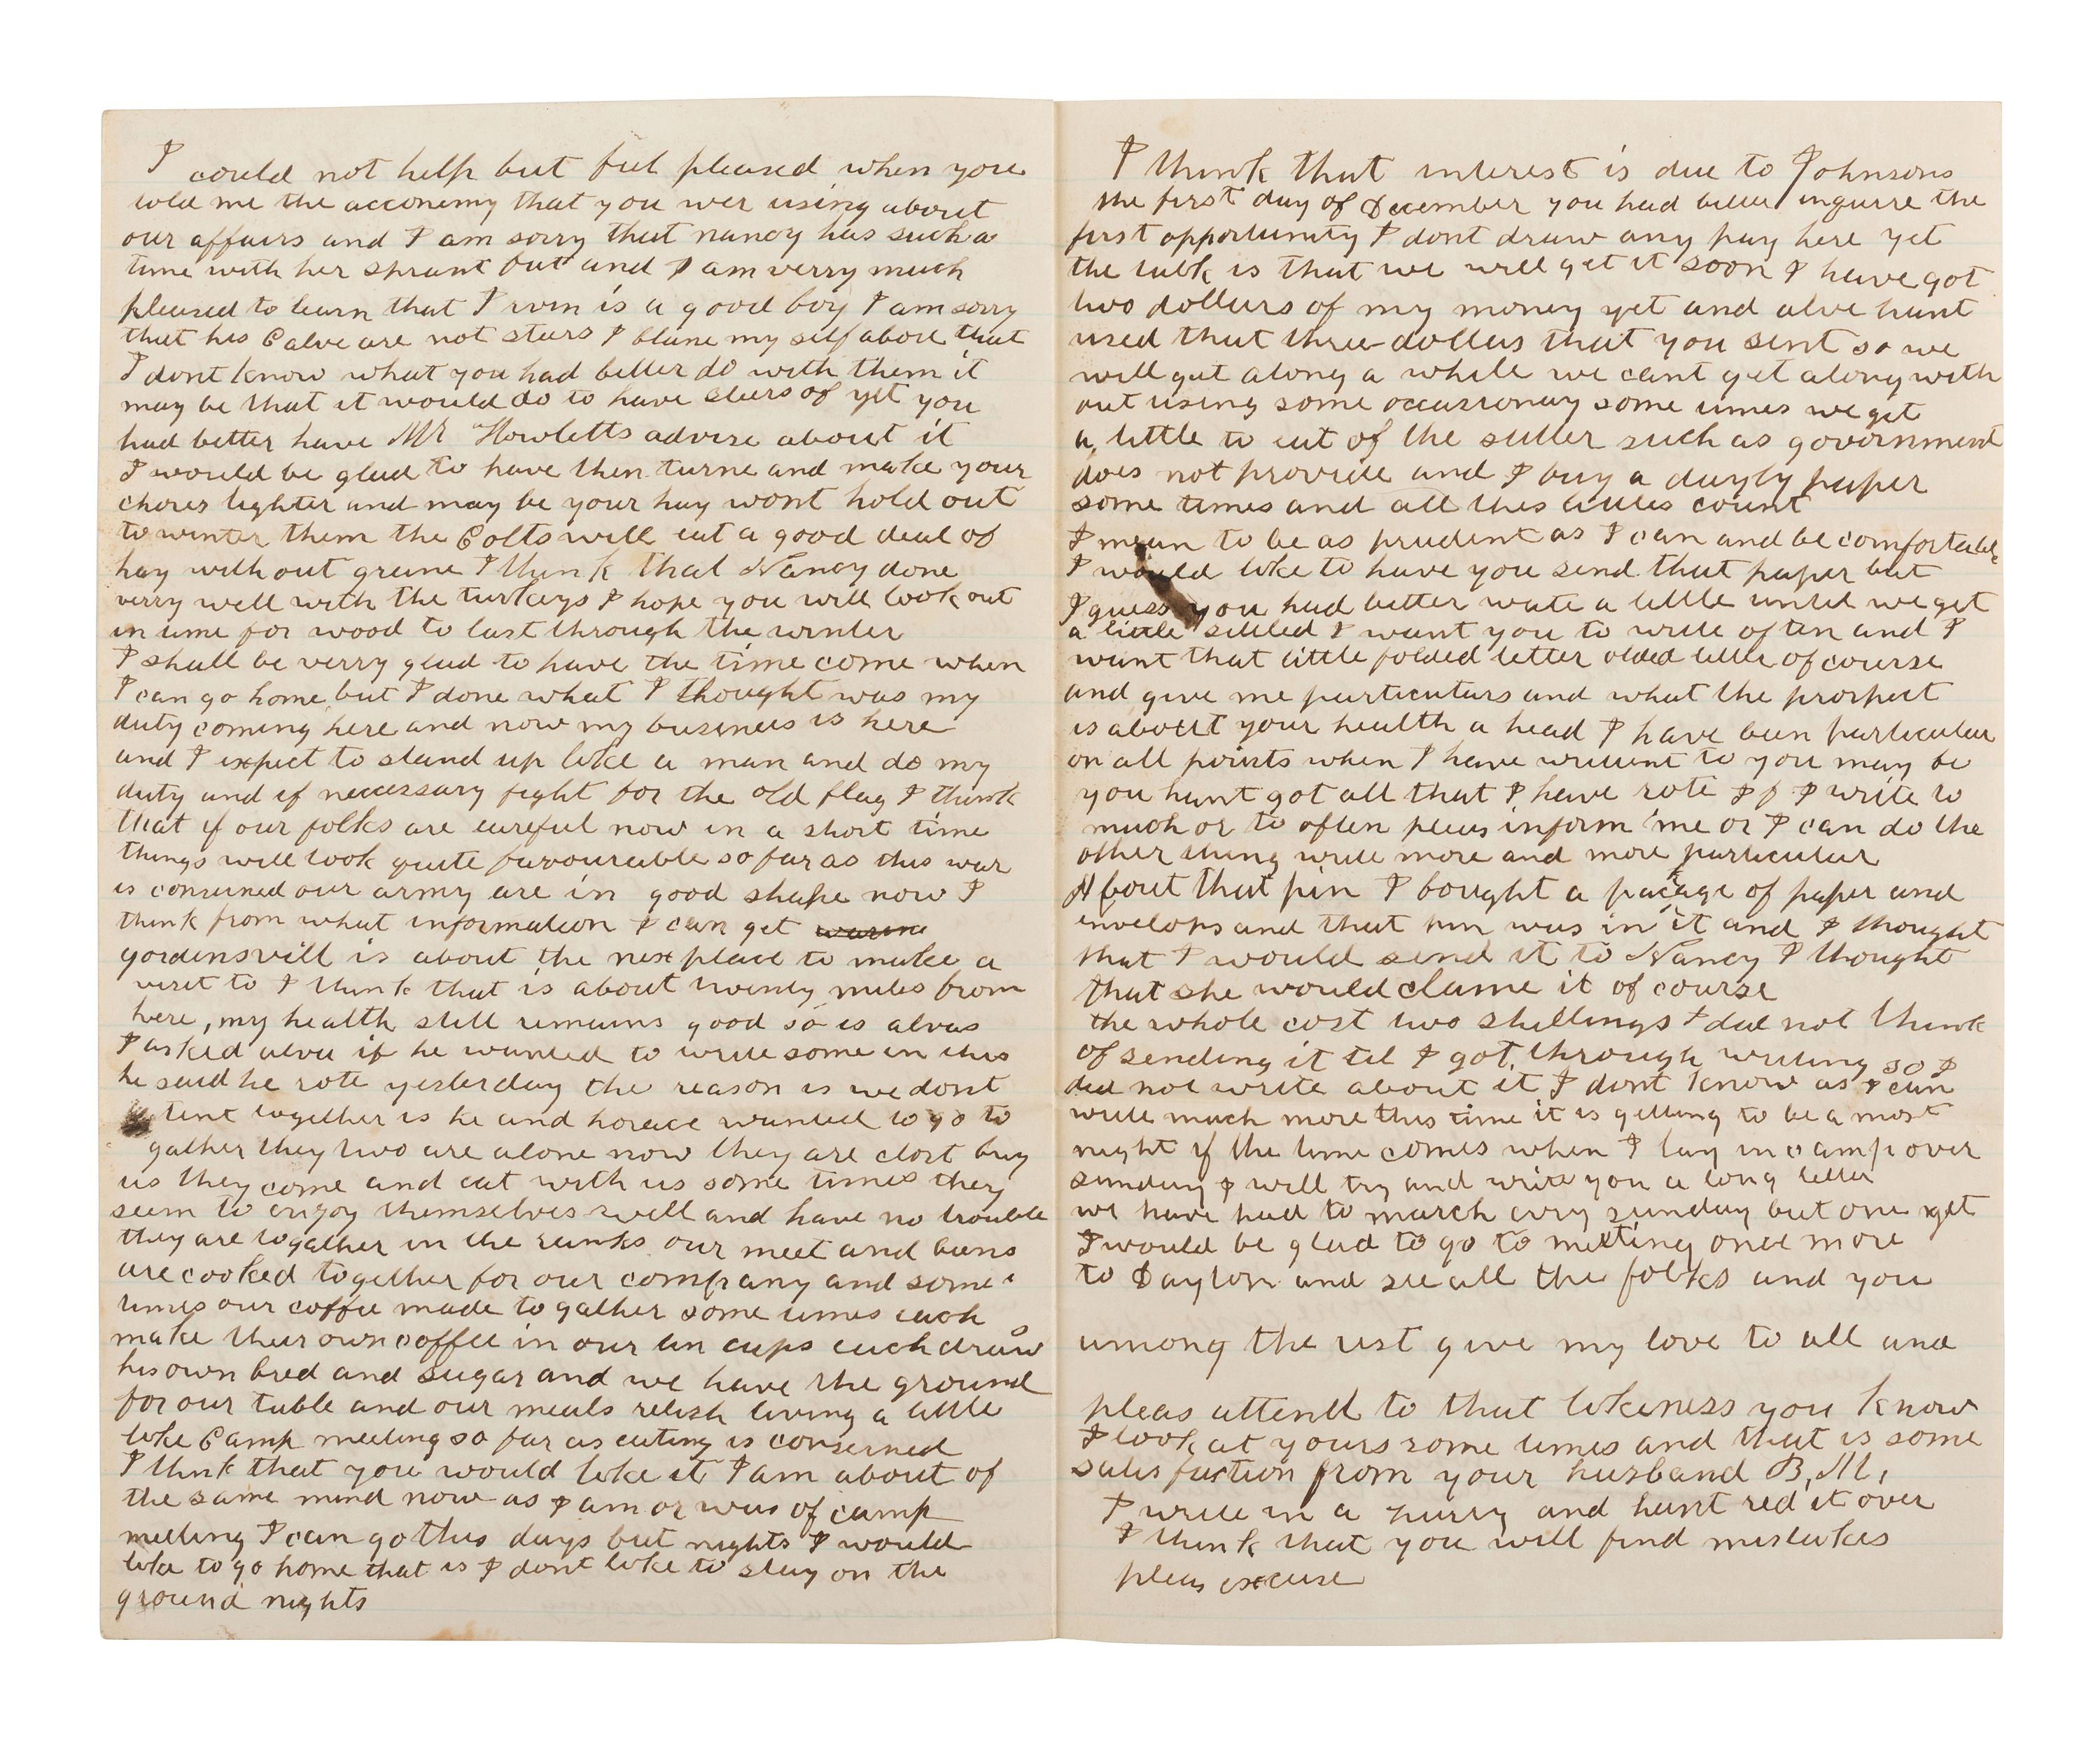 I could not help but feel pleased when you
told me the acconemy that you wer using about
our affairs and I am sorry that nancy has such a
time with her sprant but and I am verry much
pleased to learn that Irvin is a good boy I am sorry
that his Calve are not steers I blame my self about that
I dont know what you had better do with them it
may be that it would do to have steers of yet you
had better have Mr Howletts advise about it
I would be glad to have then turne and make your
chores lighter and may be your hay wont hold out
to winter them the Colts will eat a good deal of
hay without graine I think that Nancy done
verry well with the turkeys I hope you will look out
in time for wood to last through the winter
I shall be verry glad to have the time come when
I can go home but I done what I thought was my
duty coming here and now my business is here
and I expect to stand up like a man and do my
duty and if necessary fight for the old flag I think
that if our folks are careful now in a short time
things will look quite favourable so far as this war
is conserned our army are in good shape now I
think from what information I can get
gordensvill is about the nex place to make a
visit to I think that is about twenty miles from
here, my health still remains good so is alvas
I asked alva if he wanted to write some in this
he said he rote yesterday the reason is we dont
tent together is he and horace wanted to go to
gather they two are alone now they are clost buy
us they come and eat with us some times they
seem to enjoy themselves well and have no trouble
they are togather in the ranks our meet and beens
are cooked together for our company and some
times our coffee made to gather some times each
make their own coffee in our tin cups each draw
his own bred and sugar and we have the ground
for our table and our meals relish living a little
like Camp meeting so far as eating is conserned
I think that you would like it I am about of
the same mind now as I am or was of camp
meeting I can go this days but nights I would
like to go home that is I dont like to stay on the
ground nights
I think that interest is due to Johnsons
the first day of December you had better inquire the
first opportunity I dont draw any pay here yet
the talk is that we will get it soon I have got
two dollars of my money yet and alve hant
used that three dollars that you sent so we
will get along a while we cant get along with
out using some occasionaly some times we get
a little to eat of the sutler such as government
does not provide and I buy a dayly paper
some times and all thes littles count
I mean to be as prudent as I can and be comfortable
I would like to have you send that paper but
I guess you had better wate a little until we get
a little settled I want you to write often and I
want that little folded letter olded little of course
and give me particulars and what the prospect
is about your health a head I have been particular
on all points when I have writtent to you may be
you hant got all that I have rote If I write to
much or to often pleas inform me or I can do the
other thing write more and more particular
About that pin I bought a pacage of paper and
envelops and that pin was in it and I thought
that I would send it to Nancy I thought
that she would clame it of course
the whole cost two shillings I did not think
of sending it til I got through writing so I
did not write about it I dont know as I can
write much more this time it is getting to be a most
night if the time comes when I lay in camp over
sunday I will try and write you a long letter
we have had to march evry sunday but one yet
I would be glad to go to meeting once more
to Dayton and see all the folks and you
among the rest give my love to all and
pleas attend to that likeness you know
I look at yours some times and that is some
satisfaction from your husband B, M,
I write in a hurry and hant red it over
I think that you will find mistakes
pleas excuse